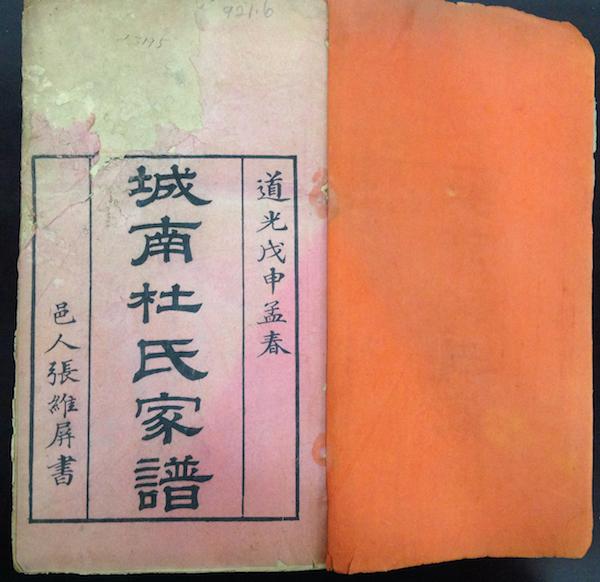 921.6
道光戊申孟春
城南杜氏家譜
邑人張維屏書